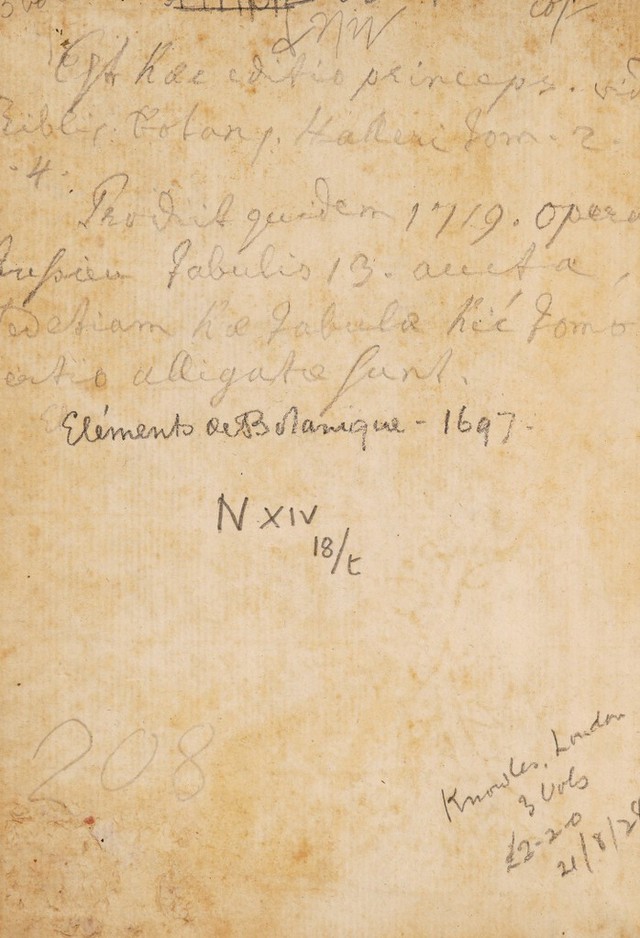 Est haec editio princeps. vid
Biblio. Botan. Halleri Tom. 2.
. 4.
Prodiit quidem 1719. opera
Jussieu Tabulis 13. aucta,
sed etiam hae Tabulae hic Tomo
ertio alligatae sunt.
Eléments de Botanique - 1697.
N XIV
18/t
208
Knowles, London
3 Vols
£2-2-0
21/8/28